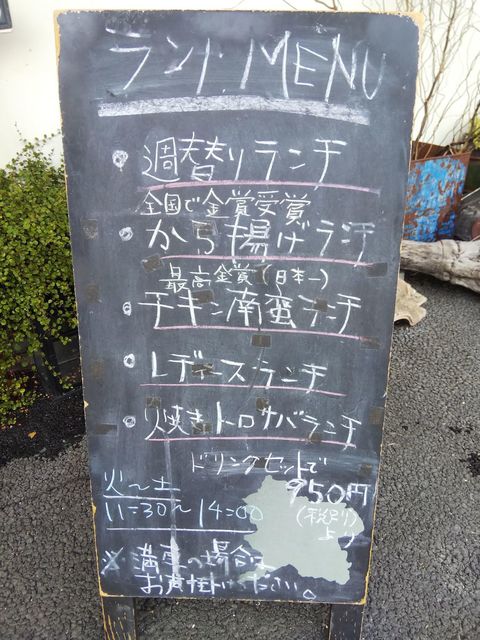 ランチMENU
週替りランチ
全国で金賞受賞
から揚げランチ
最高金賞(日本一)
チキン南蛮ランチ
レディースランチ
焼きトロサバランチ
ドリンクセットで
950円
火〜土
11=30〜14=00
※満席の場合は
お声掛けください。